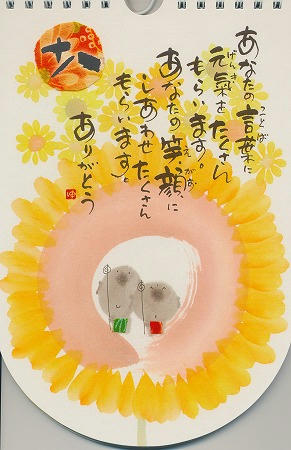 十八
あなたの言葉に
ことば
元氣をたくさん
げんき
もらいます。
あなたの笑顔に
えがお
しあわせたくさん
もらいます。
ありがとう